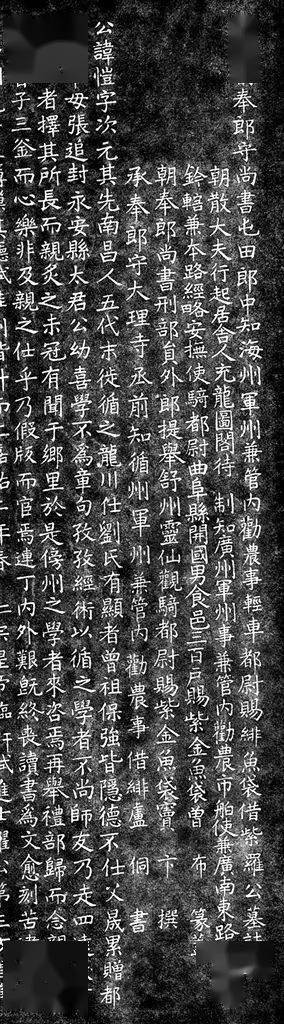 奉郎守尚書屯田郎中知海州軍州兼管內勸農事輕車都尉賜緋魚袋借紫羅公墓誌
朝散大夫行起居舍人充龍圖閣待制知廣州軍州事兼管內勸農市舶使兼廣南東路
鈐轄兼本路經略安撫使騎都尉曲阜縣開國男食邑三百戶賜紫金魚袋曾布篆
朝奉郎尚書刑部員外郎提舉舒州靈仙觀騎都尉賜紫金魚袋竇卞撰
承奉郎守大理寺丞前知循州軍州兼管內勸農事借緋盧侗書
公諱愷字次元其先南昌人五代末徙循之龍川仕劉氏有顯者曾祖保強皆隱德不仕父晟累贈都
母張追封永安縣太君公幼喜學不為童句孜孜經術以循之學者不尚師友乃走四
者擇其所長而親炙之未冠有聞于鄉里於是傍州之學者來咨焉再舉禮部歸而念親
子三釜而心樂非及親之仕乎乃假版而官焉連丁內外艱既終喪讀書為文愈刻苦